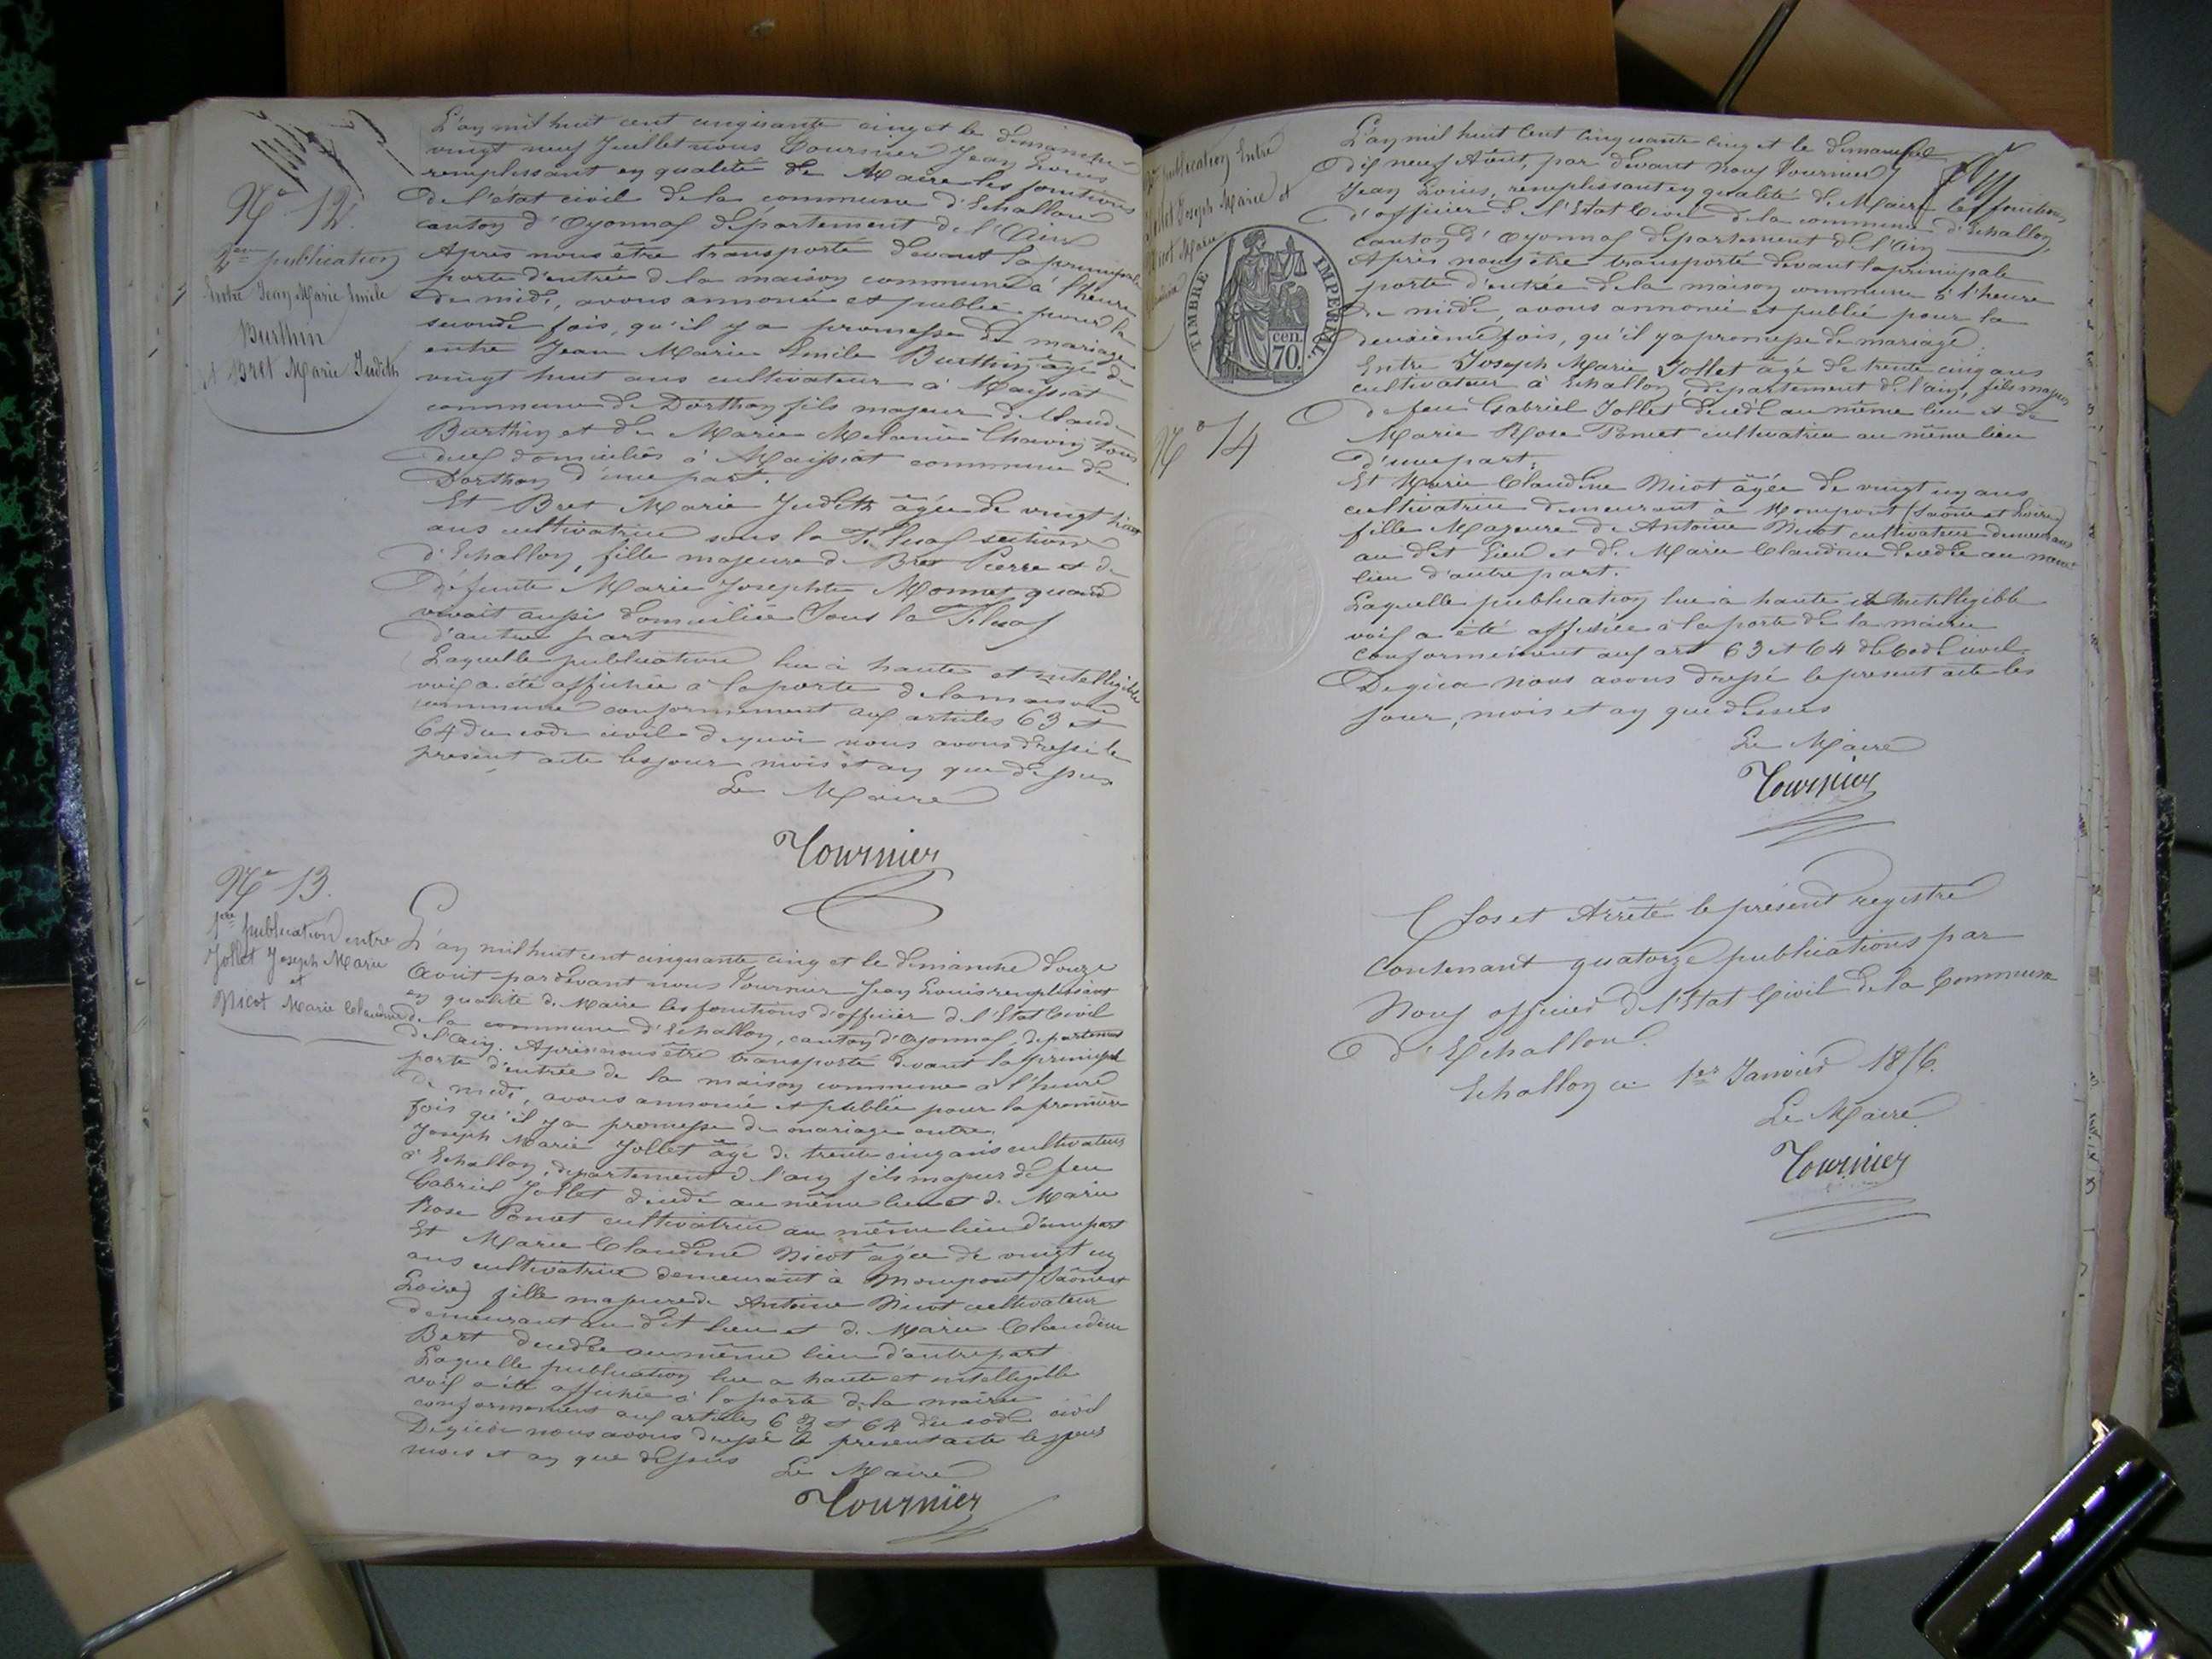 N° 12.
2me publication
Entre Jean Marie Emile
Burthin
et Bret Marie Judith
L'an mil huit cent cinquante cinq et le dimanche
vingt neuf Juillet nous Tournier Jean Louis
remplissant en qualité de Maire les fonctions
de l'état civil de la commune d'Echallon
canton d'Oyonnax département de l'Ain
Après nous être transporté devant la principale
porte d'entrée de la maison commune à l'heure
de midi, avons annoncé et publié pour la
seconde fois, qu'il y a promesse de mariage
entre Jean Marie Emile Burthin âgé de
vingt huit ans cultivateur à Maissiat
commune de Dorthan fils majeur de Claude
Burthin et de Marie Melanie Chavin tous
deux domiciliés à Maissiat commune de
Dorthan d'une part.
Et Bret Marie Judith âgée de vingt huit
ans cultivatrice sous la section
d'Echallon, fille majeure de Bret Pierre et de
défunte Marie Josephte Monnet quand
vivait aussi domiciliée Sous la
d'autre part
Laquelle publication lue à haute et intelligible
voix a été affichée à la porte de la maison
commune conformément aux articles 63 et
64 du code civil de quoi nous avons dressé le
présent acte les jour mois et an que dessus
Le Maire
Tournier
N° 13.
1ere publication entre
Jollet Joseph Marie
et
Nicot Marie Claudine
L'an mil huit cent cinquante cinq et le dimanche douze
Août pardevant nous Tournier Jean Louis remplissant
en qualité de Maire les fonctions d'officier de l'Etat Civil
de la commune d'Echallon, canton d'Oyonnax, département
de l'Ain. Après nous être transporté devant la principale
porte d'entrée de la maison commune à l'heure
de midi, avons annoncé et publié pour la première
fois qu'il y a promesse de mariage entre
Joseph Marie Jollet âgé de trente cinq ans cultivateur
à Echallon, département de l'ain fils majeur de feu
Gabriel Jollet décédé au même lieu et de Marie
Rose Poncet cultivatrice au même lieu d'une part
Et Marie Claudine Nicot âgée de vingt un
ans cultivatrice demeurant à Mompont (Saône et
Loire) fille majeure de Antoine Nicot cultivateur
demeurant au dit lieu et de Marie Claudine
Bert décédée au même lieu d'autre part
Laquelle publication lue a haute et intelligible
voix a été affichée à la porte de la mairie
conformément aux articles 63 et 64 du code civil
De quoi nous avons dressé le présent acte les jour
mois et an que dessus
Le Maire
Tournier
publication Entre
Jollet Joseph Marie et
Nicot Marie
Claudine
TIMBRE IMPERIAL.
70. cen.
N° 14
L'an mil huit Cent Cinquante Cinq et le dimanche
Dix neuf Août, par devant Nous Tournier
Jean Louis, remplissant en qualité de Maire les fonctions
d'officier de l'Etat Civil de la commune d'Echallon,
canton d'Oyonnax département de l'Ain
Après nous être transporté devant la principale
porte d'entrée de la maison commune à l'heure
de midi, avons annoncé et publié pour la
deuxième fois, qu'il y a promesse de mariage
Entre Joseph Marie Jollet âgé de trente cinq ans
cultivateur à Echallon, département de l'ain, fils majeur
de feu Gabriel Jollet décédé au même lieu et de
Marie Rose Poncet cultivatrice au même lieu
d'une part.
Et Marie Claudine Nicot âgée de vingt un ans
cultivatrice demeurant à Mompont (Saône et Loire)
fille Majeure de Antoine Nicot cultivateur demeurant
au dit lieu et de Marie Claudine décédée au même
lieu d'autre part.
Laquelle publication lue à haute et Intelligible
voix a été affichée à la porte de la mairie
conformément aux art 63 et 64 du Code civil
De quoi nous avons dressé le présent acte les
jour, mois et an que dessus
Le Maire
Tournier
Clos et Arrêté le présent registre
Contenant quatorze publications par
Nous officier de l'Etat Civil de la Commune
d'Echallon.
Echallon ce 1er Janvier 1856.
Le Maire
Tournier